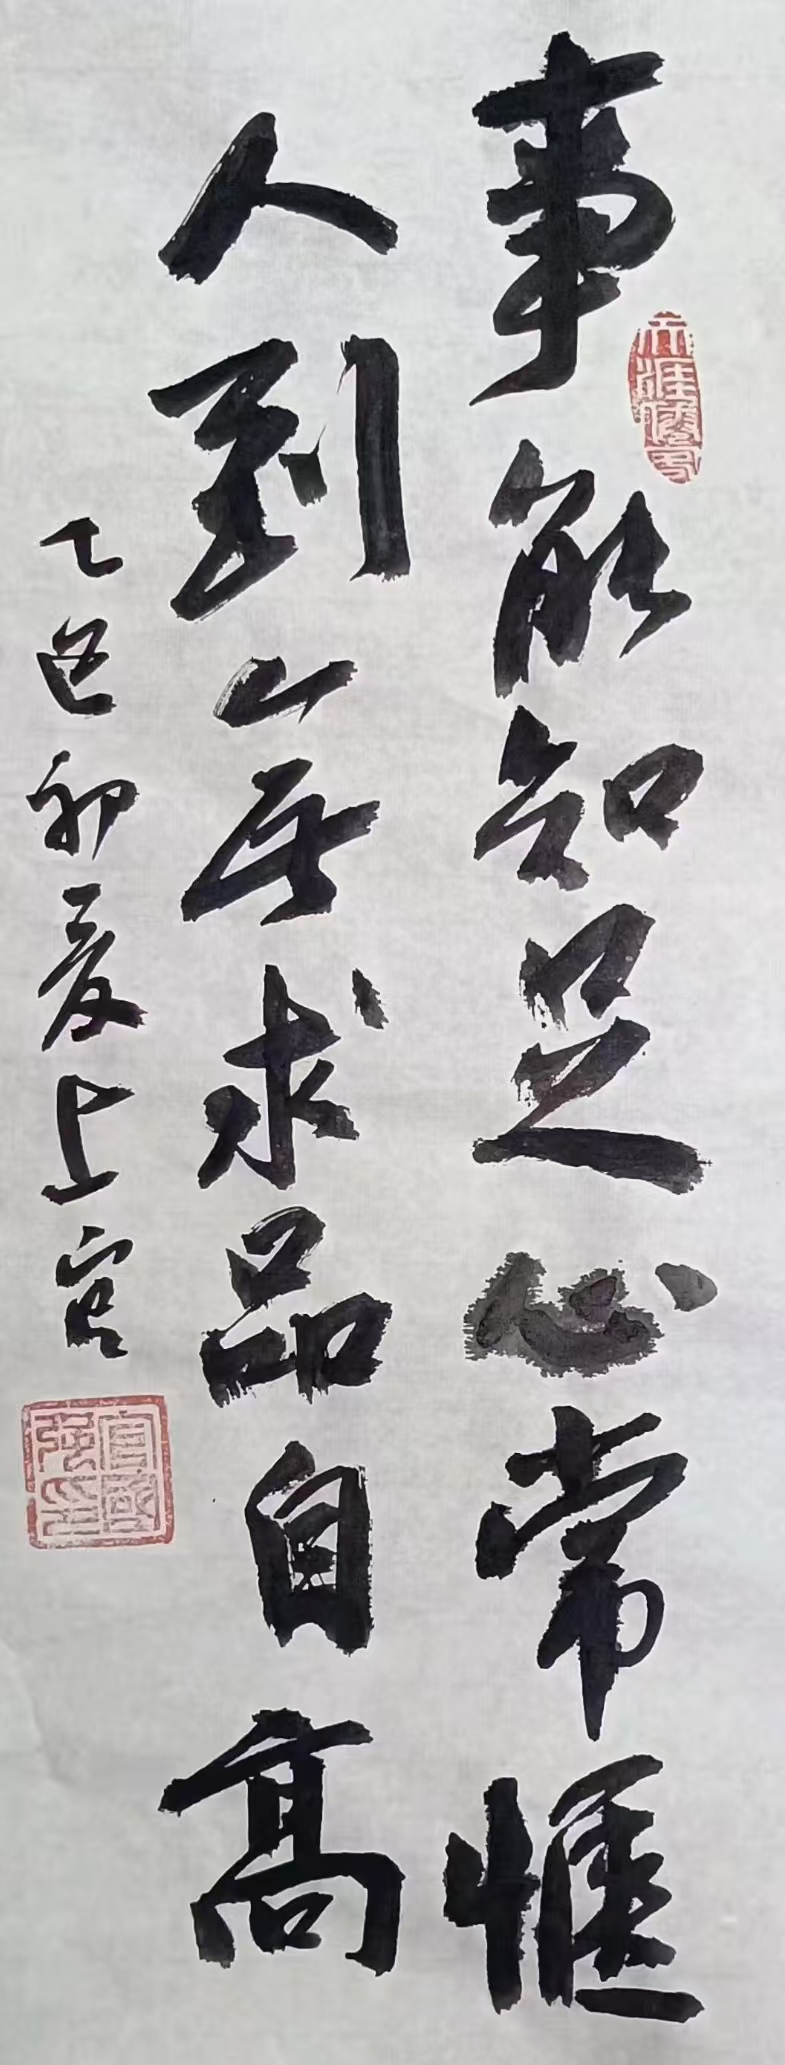 事能知足心常愜
人到無求品自高
乙巳初夏上官